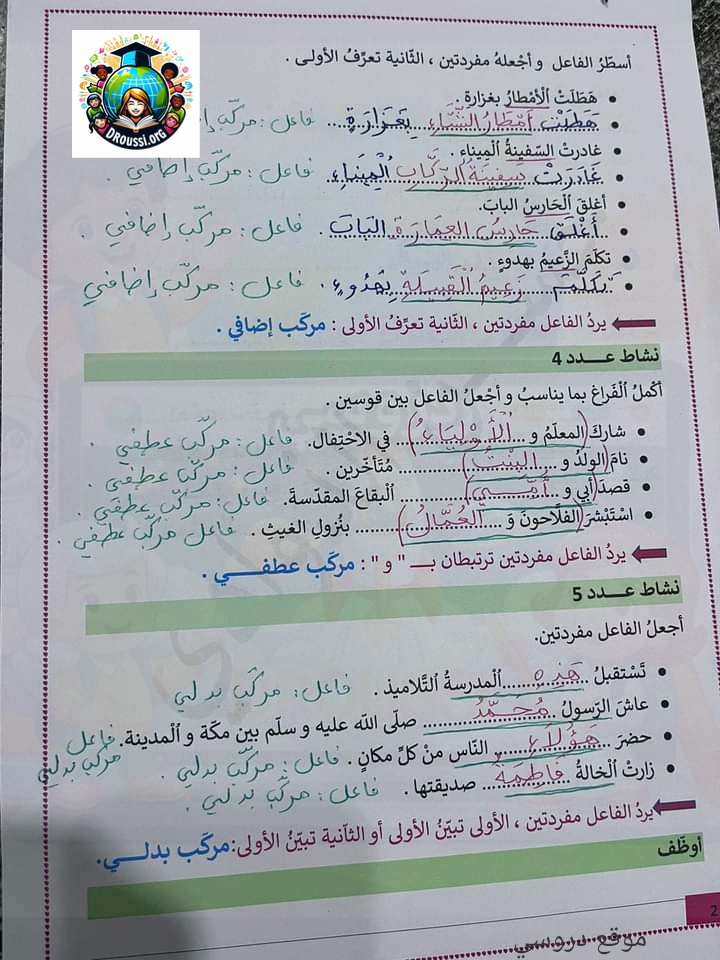 DRoussi.org
أسطّرُ الفاعل و أجْعلهُ مفردتين ، الثّانية تعرّفُ الأولى .
• هَطَلَتْ اْلأمْطارُ بغزارة .
• هَطَلَتْ أمْطَارُ الشِّتَاءِ بِغَزَارَةٍ. فاعل : مركّب إضافي
• غادرتْ السّفينةُ اْلميناء .
• غَادَرَتْ سَفِينَةُ الرُّكَّابِ الْمِينَاءِ. فاعل : مركّب إضافي .
• أغلقَ اْلحَارسُ البابَ.
• أَغْلَقَ حَارِسُ العِمَارَةِ البَابَ . فاعل : مركّب إضافي .
• تكلّمَ الزّعيمُ بهدوءٍ .
• تَكَلَّمَ زَعِيمُ الْقَبِيلَةِ بِهُدُوءٍ . فاعل : مركّب إضافي
يردُ الفاعل مفردتين ، الثّانية تعرّفُ الأولى : مركّب إضافي .
نشاط عـــدد 4
أكْملُ اْلفَراغ بما يناسبُ و أجْعلُ الفاعل بين قوسين .
• شاركَ (المعلّمُ و ... الْأَوْلِيَاءُ) في الاحْتِفال. فاعل : مركّب عطفي .
• نامَ (الولدُ و ... الْبِنْتُ) ... مُتَأخّرين . فاعل : مركّب عطفي .
• قصدَ (أبي و ... أُمِّي) ... اْلبقاعَ المقدّسةَ. فاعل : مركّب عطفي .
• اسْتَبْشرَ (الفلاّحونَ وَ ... الْعُمَّالُ) ... بنُزولِ الغيثِ . فاعل مركّب عطفي .
يردُ الفاعل مفردتين ترتبطان بــ " و " : مركّب عطفـــي .
نشاط عـــدد 5
أجعلُ الفاعل مفردتين.
• تَسْتقبلُ هَذِهِ اْلمدرسةُ التّلاميذ . فاعل : مركّب بدلي
• عاشَ الرّسولُ مُحَمَّدُ صلّى الله عليه و سلّم بين مكّة و اْلمدينة. فاعل مركّب بدلي
• حضرَ هَؤُلَاءِ النّاس منْ كلّ مكانٍ . فاعل : مركّب بدلي .
• زارتْ اْلخالةُ فَاطِمَةُ صديقتها . فاعل : مركّب بدلي .
يردُ الفاعل مفردتين ، الأولى تبيّن الأولى أو الثاّنية تبيّنُ الأولى: مركّب بدلـــي.
أوظّف
2
موقع دروسي